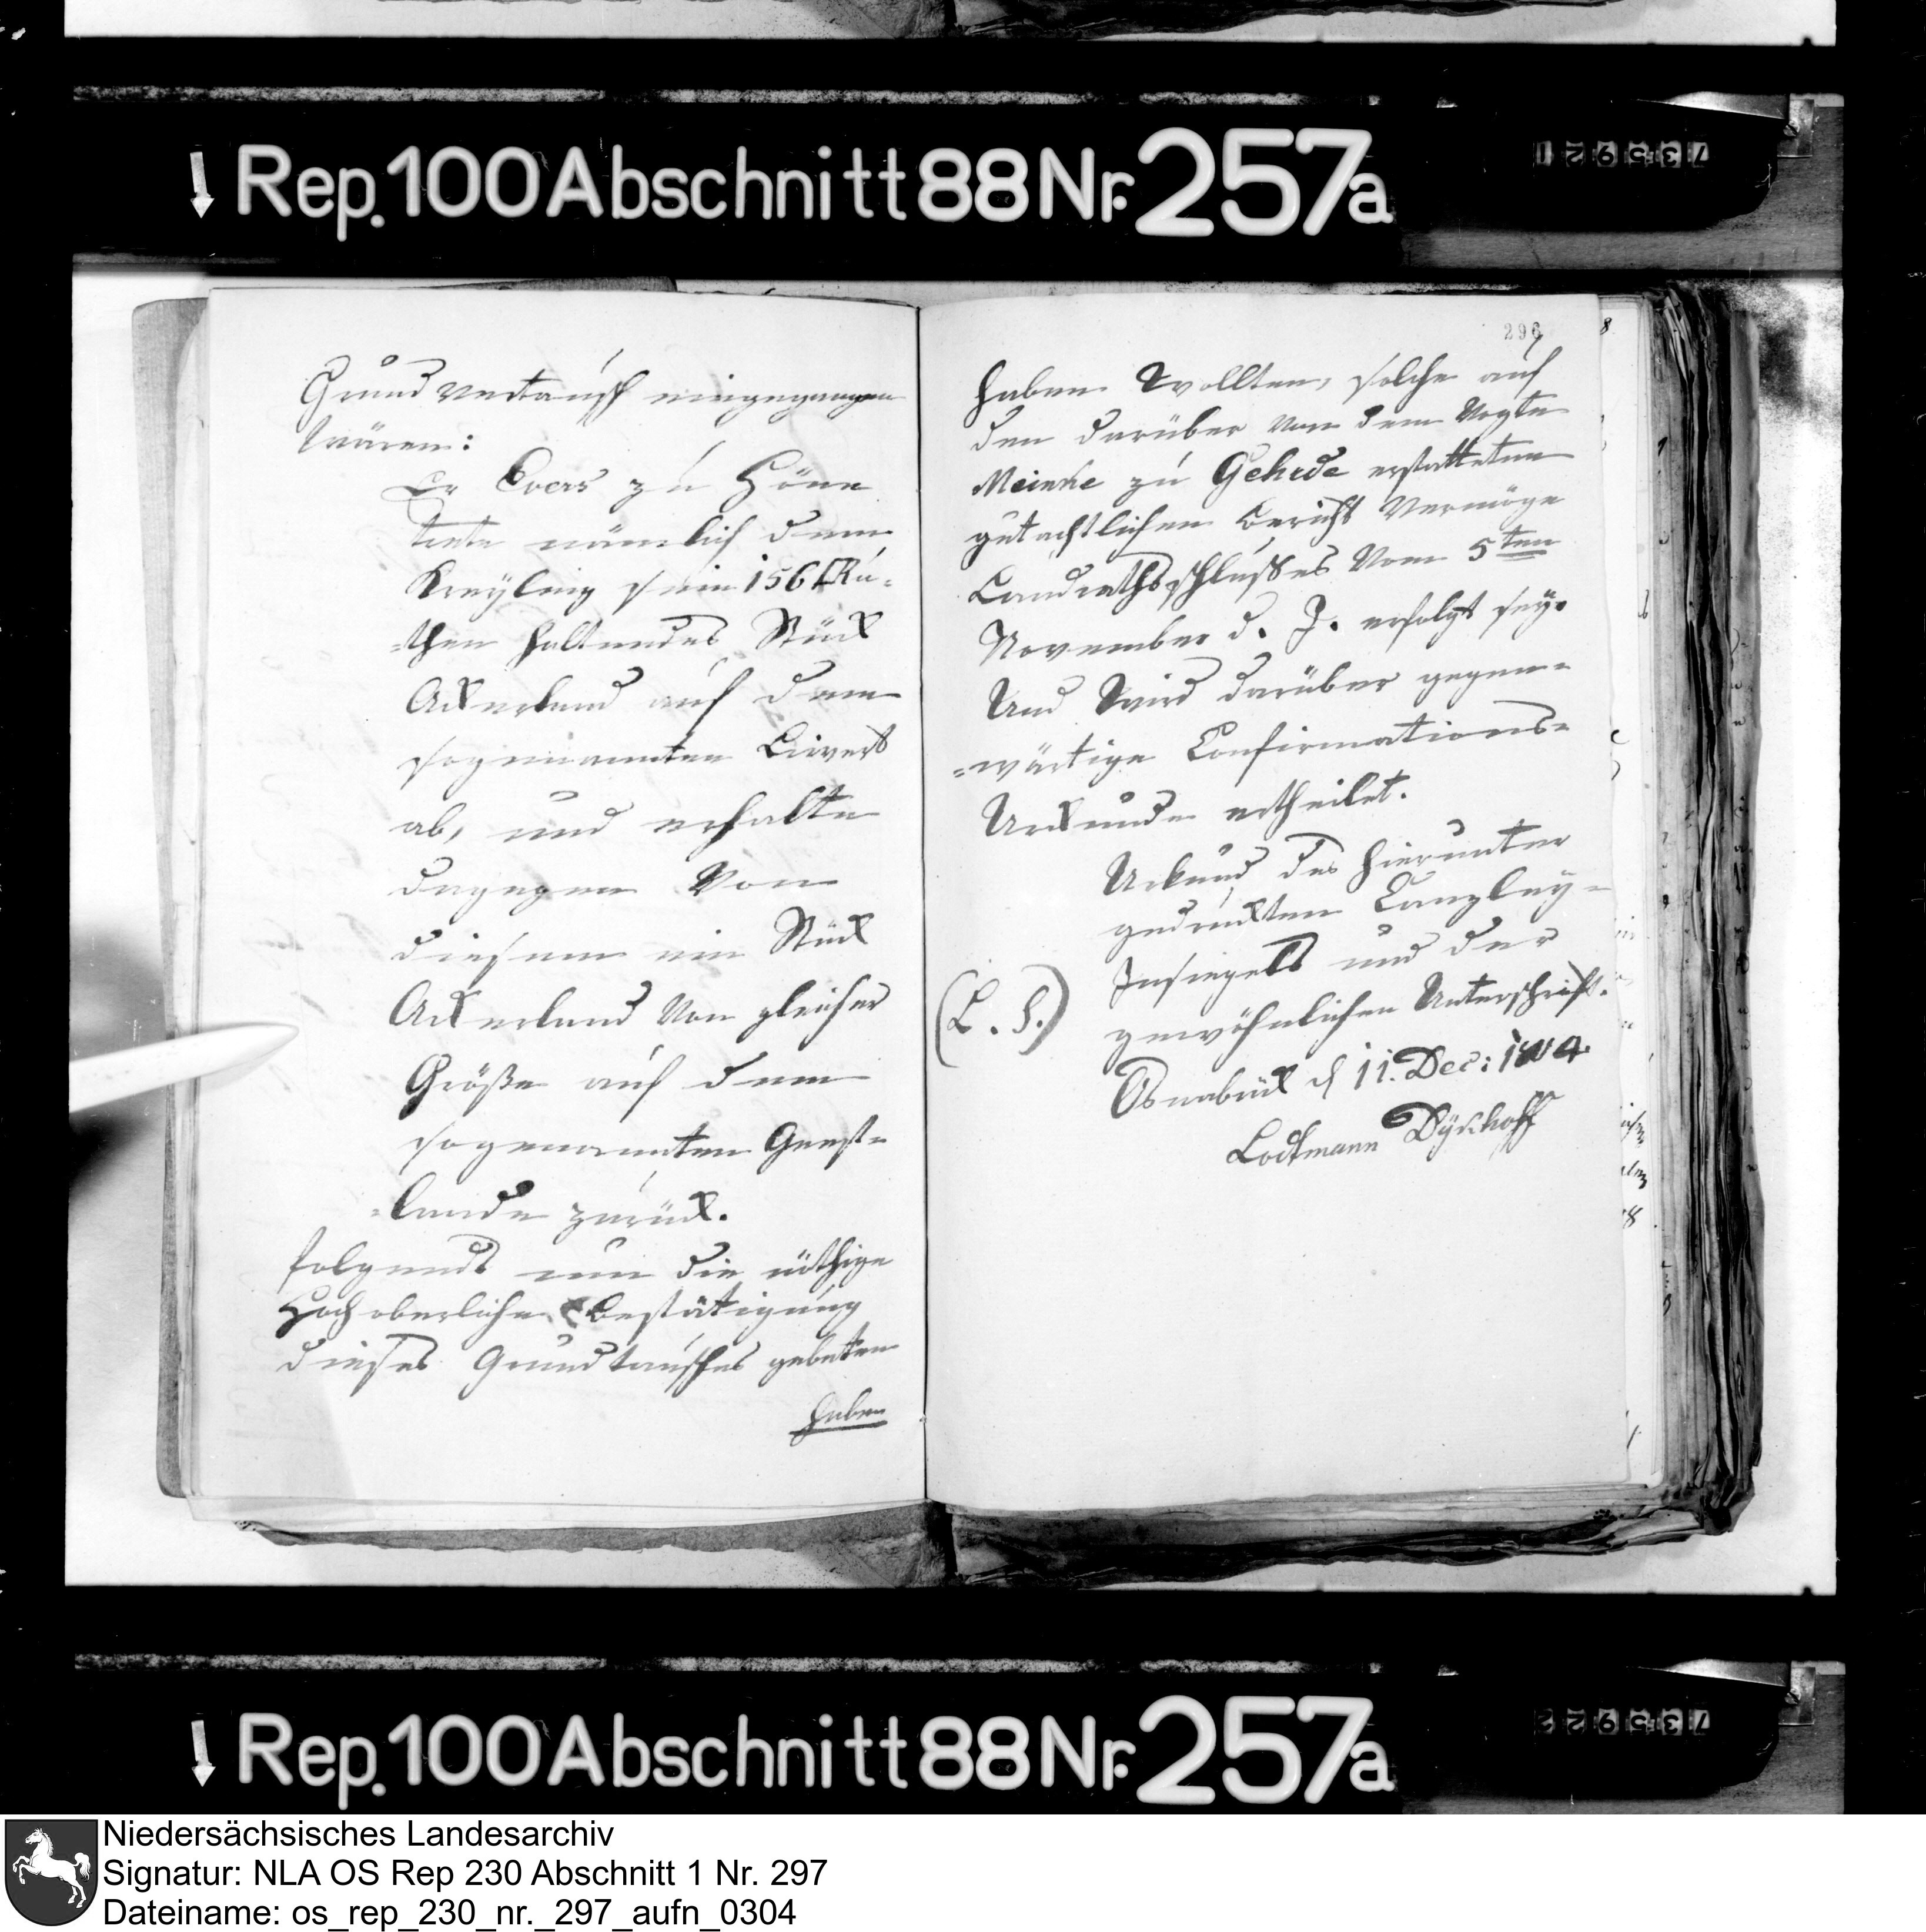 Rep. 100 Abschnitt 88 Nr. 257a
735921
Grund vertausch eingegangen
wären:
Er Evers zu Höne
trete nämlich dem
Kreyling sein 156 □Ru-
=then haltendes Stück
Ackerland auf dem
sogenannten
ab, und erhalte
dagegen von
diesem ein Stück
Ackerland von gleicher
Größe auf dem
sogenannten Geest-
=lande zurück.
folgends nun die nöthige
Hochoberliche Bestätigung
dieses Grundtausches gebeten
haben
296
haben wollten, solche auf
den darüber von dem Vogte
Meinke zu Gehrde erstatteten
gutachtlichen Bericht vermöge
Landrathsschlusses vom 5ten
November d. J. erfolgt sey.
Und wird darüber gegen-
=wärtige Confirmations-
Urkunde ertheilet.
Urkund des hierunter
gedruckten Canzley-
Insiegels und der
(L. S.)
gewöhnlichen Unterschrift.
Osnabrück d 11. Dec: 1804
Lodtmann Dyckhoff
Rep. 100 Abschnitt 88 Nr. 257a
735922
Niedersächsisches Landesarchiv
Signatur: NLA OS Rep 230 Abschnitt 1 Nr. 297
Dateiname: os_rep_230_nr._297_aufn_0304